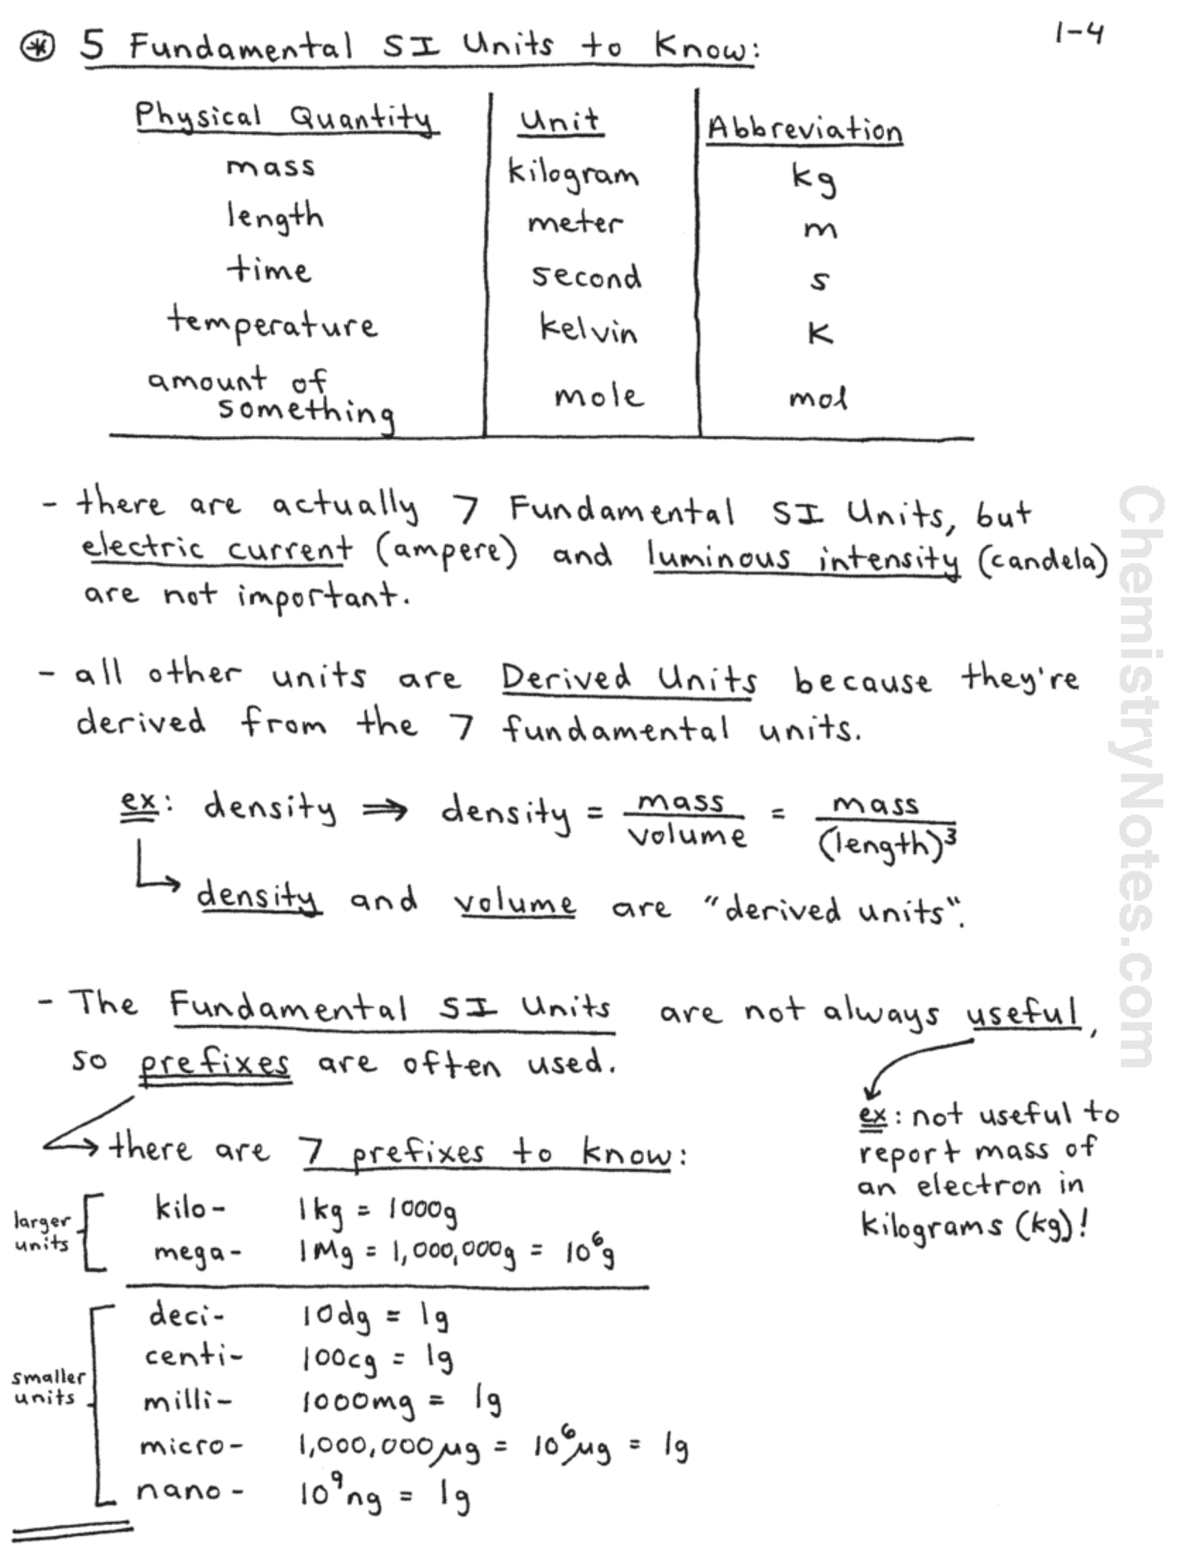 ⊛ 5 Fundamental SI Units to Know:
1-4
Physical Quantity Unit Abbreviation
mass kilogram kg
length meter m
time second s
temperature kelvin K
amount of
something mole mol
- there are actually 7 Fundamental SI Units, but
electric current (ampere) and luminous intensity (candela)
are not important.
- all other units are Derived Units because they're
derived from the 7 fundamental units.
ex: density ⇒ density = mass/volume = mass/(length)³
density and volume are "derived units".
- The Fundamental SI Units are not always useful,
so prefixes are often used.
ex: not useful to
report mass of
an electron in
kilograms (kg)!
there are 7 prefixes to know:
larger
units
kilo- 1kg = 1000g
mega- 1Mg = 1,000,000g = 10⁶g
smaller
units
deci- 10dg = 1g
centi- 100cg = 1g
milli- 1000mg = 1g
micro- 1,000,000µg = 10⁶µg = 1g
nano- 10⁹ng = 1g
ChemistryNotes.com